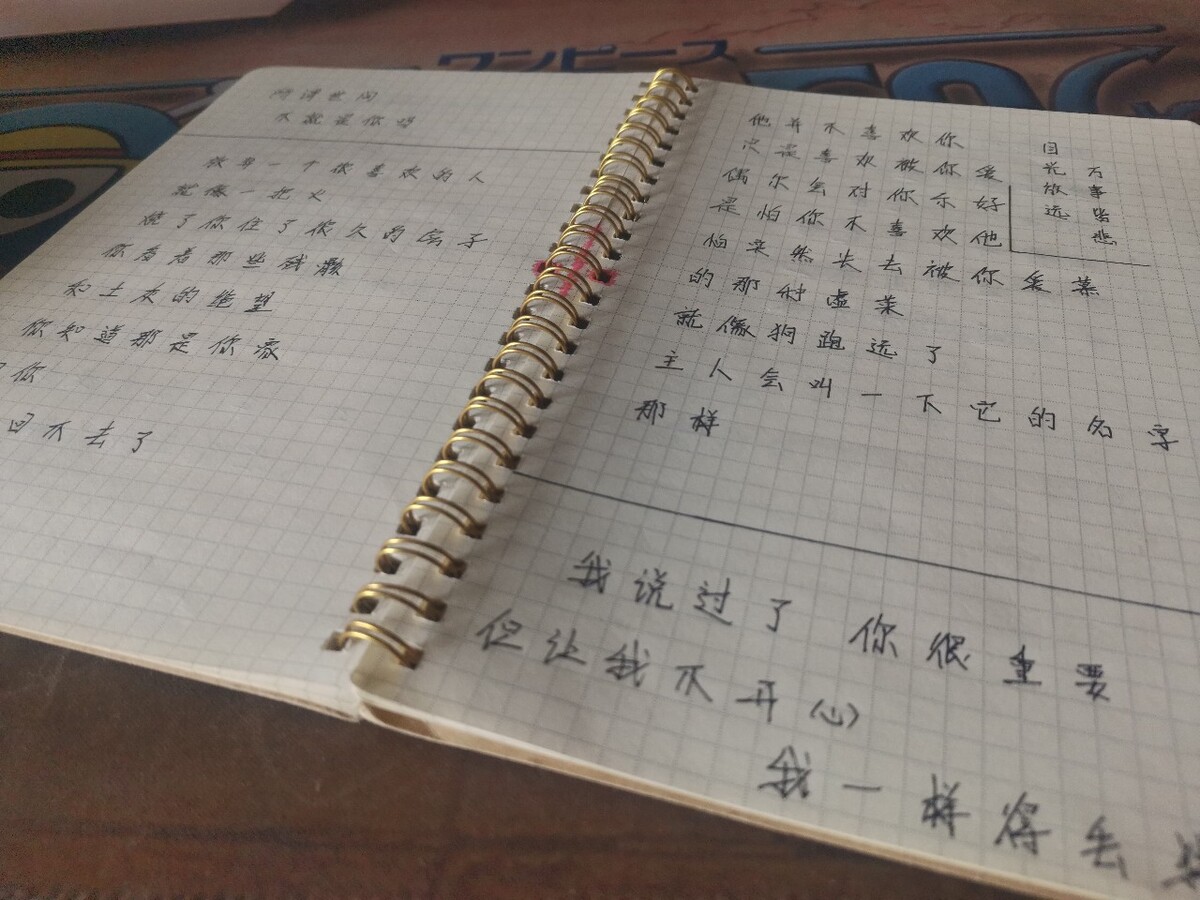 ワンピース
所谓世间
不就是你吗
放弃一个很喜欢的人
就像一把火
烧了你住了很久的房子
你看着那些残骸
和土灰的绝望
你知道那是你家
你
回不去了
他并不喜欢你
只是喜欢被你爱
偶尔会对你示好
是怕你不喜欢他
怕突然失去被你爱慕
的那份虚荣
就像狗跑远了
主人会叫一下它的名字
那样
目光放远
万事皆悲
我说过了 你很重要
但让我不开(心)
我一样得丢